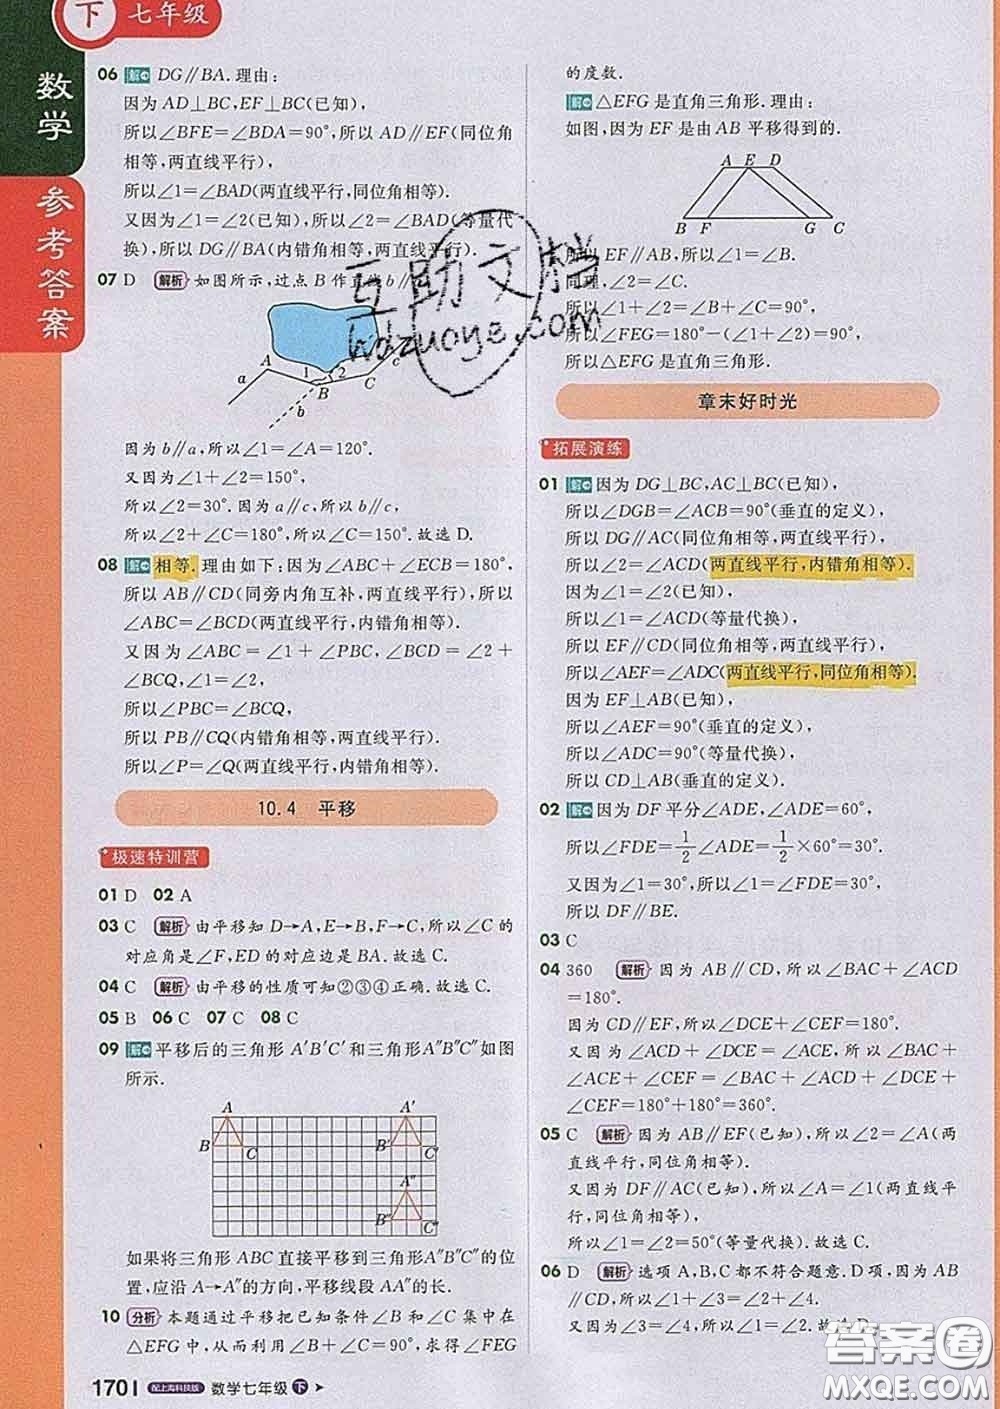 下 七年级
数学
参考答案
06 解 DG∥BA.理由:
因为AD⊥BC,EF⊥BC(已知),
所以∠BFE=∠BDA=90°,所以AD∥EF(同位角
相等,两直线平行),
所以∠1=∠BAD(两直线平行,同位角相等).
又因为∠1=∠2(已知),所以∠2=∠BAD(等量代
换),所以DG∥BA(内错角相等,两直线平行).
07 D 解析 如图所示,过点B作直线b∥
A
a
1
2
B
C
c
b
因为b∥a,所以∠1=∠A=120°.
又因为∠1+∠2=150°,
所以∠2=30°.因为a∥c,所以b∥c,
所以∠2+∠C=180°,所以∠C=150°.故选D.
08 解 相等.理由如下:因为∠ABC+∠ECB=180°,
所以AB∥CD(同旁内角互补,两直线平行),所以
∠ABC=∠BCD(两直线平行,内错角相等).
又因为∠ABC=∠1+∠PBC,∠BCD=∠2+
∠BCQ,∠1=∠2,
所以∠PBC=∠BCQ,
所以PB∥CQ(内错角相等,两直线平行),
所以∠P=∠Q(两直线平行,内错角相等).
10.4 平移
极速特训营
01 D 02 A
03 C 解析 由平移知D→A,E→B,F→C,所以∠C的
对应角是∠F,ED的对应边是BA.故选C.
04 C 解析 由平移的性质可知②③④正确.故选C.
05 B 06 C 07 C 08 C
09 解 平移后的三角形A′B′C′和三角形A″B″C″如图
所示.
A
B
C
A′
B′
C′
A″
B″
C″
如果将三角形ABC直接平移到三角形A″B″C″的位
置,应沿A→A″的方向,平移线段AA″的长.
10 分析 本题通过平移把已知条件∠B和∠C集中在
△EFG中,从而利用∠B+∠C=90°,求得∠FEG
170 配上海科技版 数学七年级 下
的度数.
解 △EFG是直角三角形.理由:
如图,因为EF是由AB平移得到的.
A E D
B F G C
所以EF∥AB,所以∠1=∠B.
同理,∠2=∠C.
所以∠1+∠2=∠B+∠C=90°,
所以∠FEG=180°-(∠1+∠2)=90°,
所以△EFG是直角三角形.
章末好时光
拓展演练
01 解 因为DG⊥BC,AC⊥BC(已知),
所以∠DGB=∠ACB=90°(垂直的定义),
所以DG∥AC(同位角相等,两直线平行),
所以∠2=∠ACD(两直线平行,内错角相等).
因为∠1=∠2(已知),
所以∠1=∠ACD(等量代换),
所以EF∥CD(同位角相等,两直线平行),
所以∠AEF=∠ADC(两直线平行,同位角相等).
因为EF⊥AB(已知),
所以∠AEF=90°(垂直的定义),
所以∠ADC=90°(等量代换),
所以CD⊥AB(垂直的定义).
02 解 因为DF平分∠ADE,∠ADE=60°,
所以∠FDE=1/2∠ADE=1/2×60°=30°.
又因为∠1=30°,所以∠1=∠FDE=30°,
所以DF∥BE.
03 C
04 360 解析 因为AB∥CD,所以∠BAC+∠ACD
=180°.
因为CD∥EF,所以∠DCE+∠CEF=180°.
又因为∠ACD+∠DCE=∠ACE,所以∠BAC+
∠ACE+∠CEF=∠BAC+∠ACD+∠DCE+
∠CEF=180°+180°=360°.
05 C 解析 因为AB∥EF(已知),所以∠2=∠A(两
直线平行,同位角相等).
又因为DF∥AC(已知),所以∠A=∠1(两直线平
行,同位角相等),
所以∠1=∠2=50°(等量代换).故选C.
06 D 解析 选项A,B,C都不符合题意.D项,因为AB
∥CD,所以∠1+∠3=∠2+∠4.
又因为∠3=∠4,所以∠1=∠2.故选D.
互助文档
hdzuoye.com
答案圈
MXQE.COM